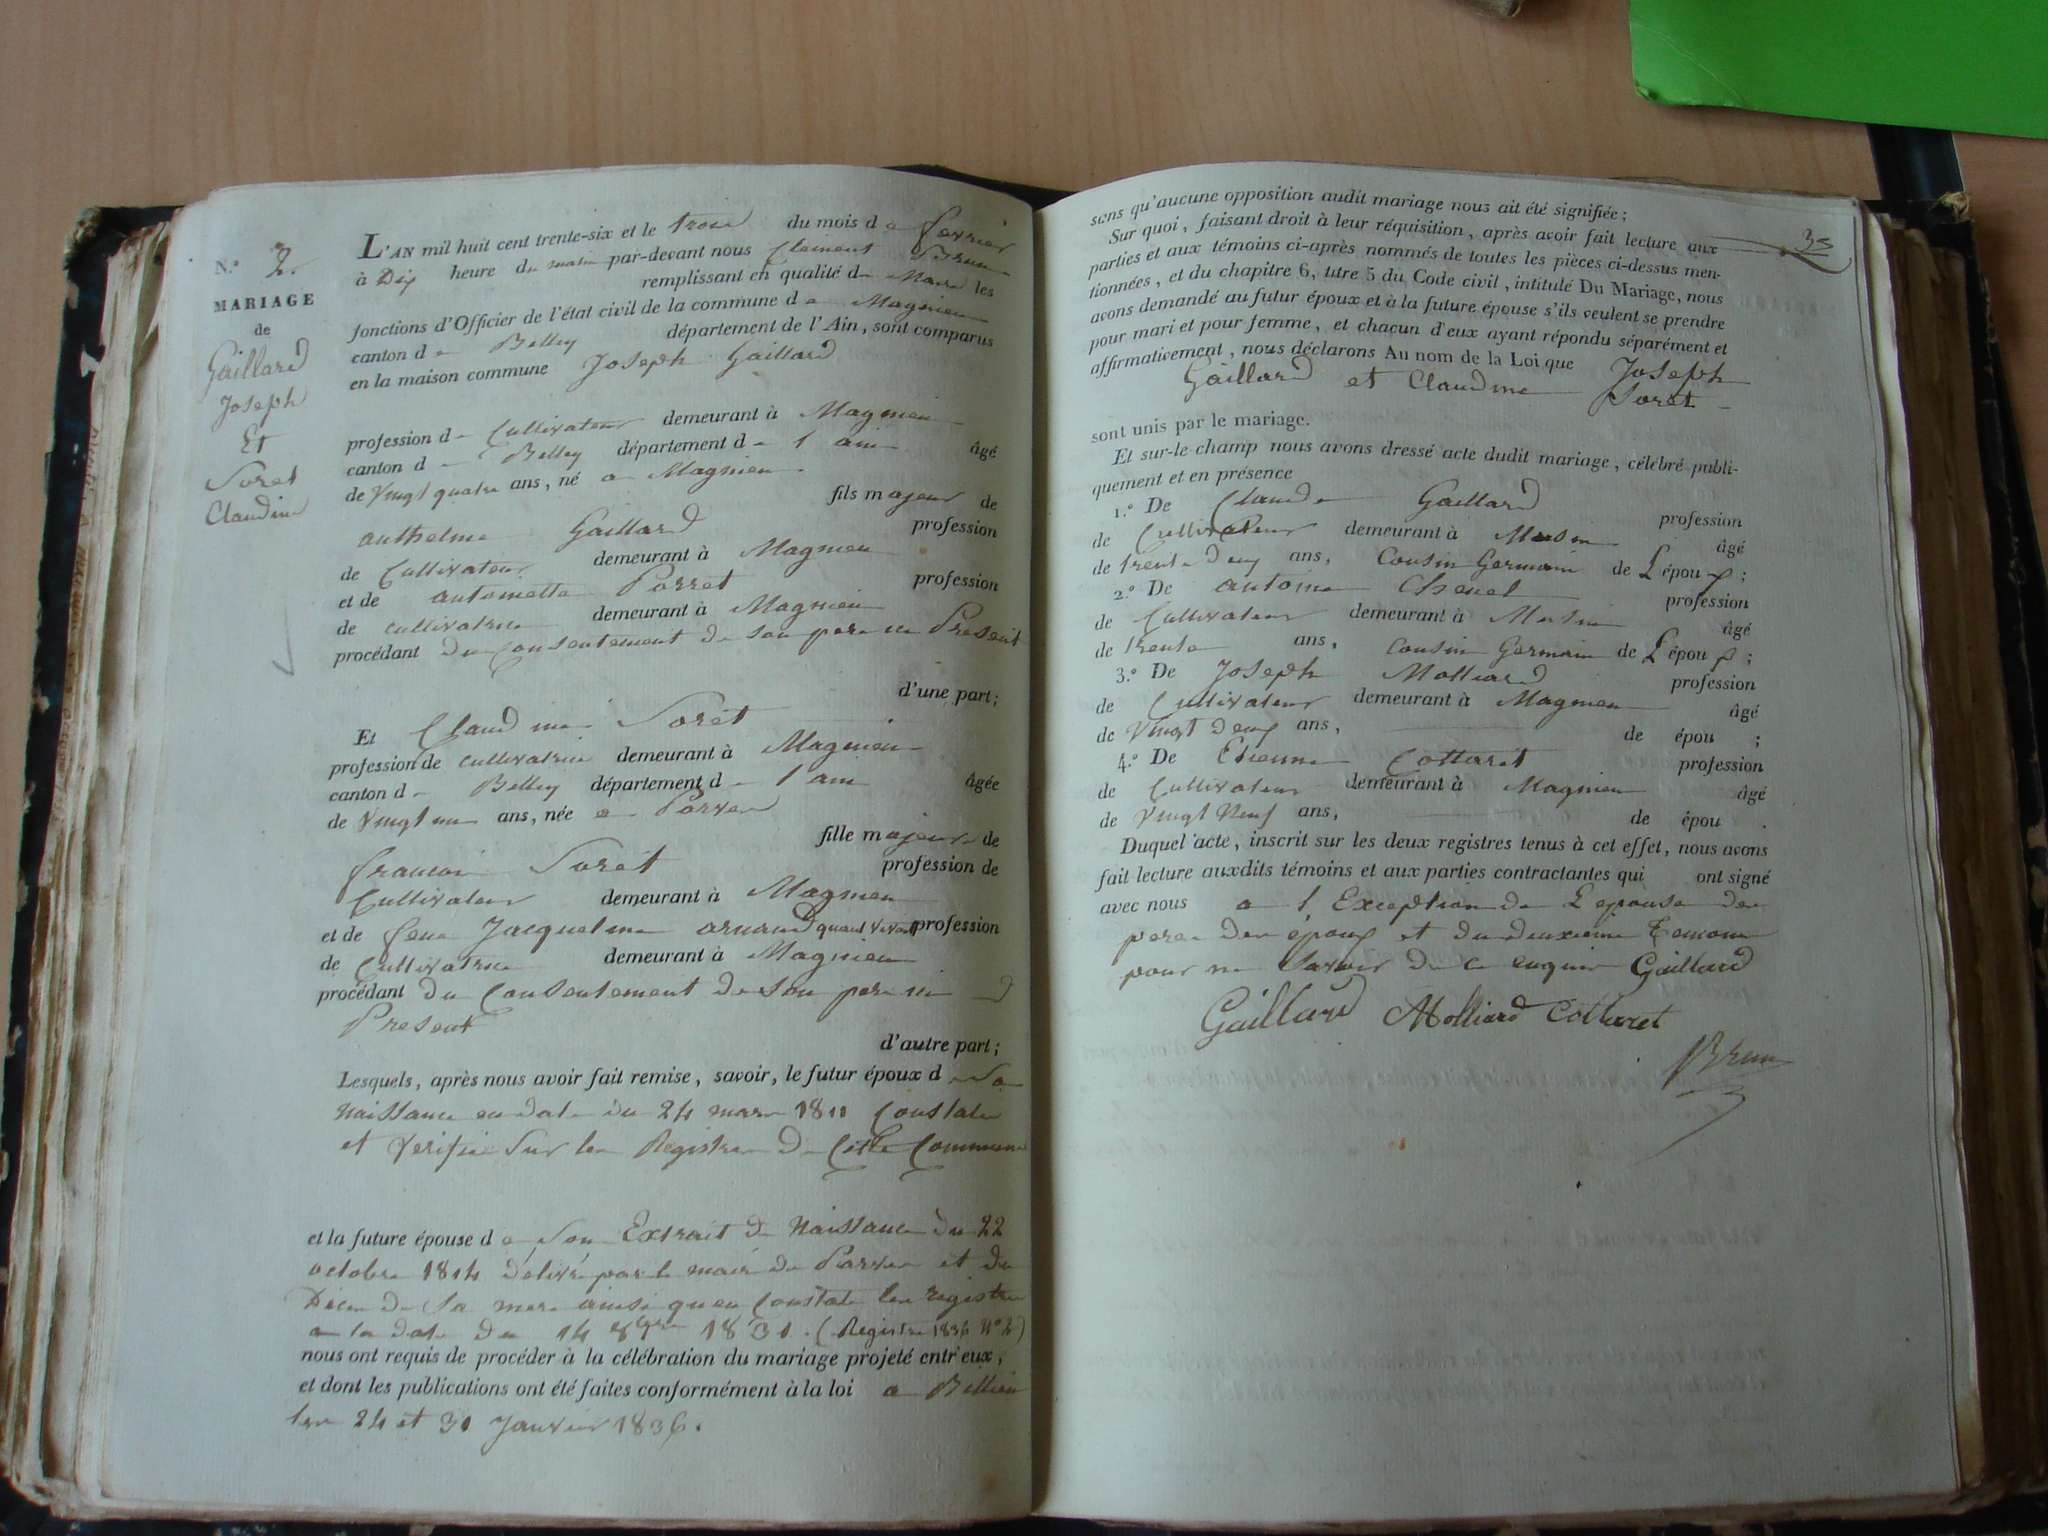 N.º 2.
MARIAGE
de
Gaillard
Joseph
Et
Soret
Claudine
L'AN mil huit cent trente-six et le trois du mois de fevrier
à Dix heure du matin par-devant nous Clement Brun
remplissant en qualité de Maire les
fonctions d'Officier de l'état civil de la commune de Magnieu
canton de Belley département de l'Ain, sont comparus
en la maison commune Joseph Gaillard
profession de Cultivateur demeurant à Magnieu
canton de Belley département de l ain âgé
de Vingt quatre ans, né a Magnieu
fils majeur de
anthelme Gaillard profession
de Cultivateur demeurant à Magnieu
et de antoinette Porret profession
de cultivatrice demeurant à Magnieu
procédant du Consentement de son pere ici Present
d'une part;
Et Claudine Soret
profession de cultivatrice demeurant à Magnieu
canton de Belley département de l ain âgée
de Vingt un ans, née a Parves
fille majeure de
francois Soret profession de
Cultivateur demeurant à Magnieu
et de feue Jacqueline arnaud quand vivait profession
de Cultivatrice demeurant à Magnieu
procédant du Consentement de son pere ici
Present
d'autre part;
Lesquels, après nous avoir fait remise, savoir, le futur époux de Sa
Naissance en date du 24 mars 1811 Constatée
et Verifié Sur les Registres de Cette Commune
et la future épouse de son Extrait de Naissance du 22
octobre 1814 délivré par le maire de Parves et du
Déces de Sa mere ainsi quen Constate les registres
a la date du 14 8bre 1831. (Registre 1836 Nº 2)
nous ont requis de procéder à la célébration du mariage projeté entr'eux,
et dont les publications ont été faites conformément à la loi a
les 24 et 31 Janvier 1836.
35
sans qu'aucune opposition audit mariage nous ait été signifiée;
Sur quoi, faisant droit à leur réquisition, après avoir fait lecture aux
parties et aux témoins ci-après nommés de toutes les pièces ci-dessus men-
tionnées, et du chapitre 6, titre 5 du Code civil, intitulé Du Mariage, nous
avons demandé au futur époux et à la future épouse s'ils veulent se prendre
pour mari et pour femme, et chacun d'eux ayant répondu séparément et
affirmativement, nous déclarons Au nom de la Loi que Joseph
Gaillard et Claudine Soret
sont unis par le mariage.
Et sur-le champ nous avons dressé acte dudit mariage, célébré publi-
quement et en présence
1.º De Claude Gaillard profession
de Cultivateur demeurant à âgé
de trente deux ans, Cousin Germain de L époux;
2.º De antoine profession
de Cultivateur demeurant à âgé
de trente ans, Cousin Germain de L époux;
3.º De Joseph Molliard profession
de Cultivateur demeurant à Magnieu âgé
de Vingt deux ans, de épou ;
4.º De Etienne Cottaret profession
de Cultivateur demeurant à Magnieu âgé
de Vingt Neuf ans, de épou .
Duquel acte, inscrit sur les deux registres tenus à cet effet, nous avons
fait lecture auxdits témoins et aux parties contractantes qui ont signé
avec nous a l Exception de L epouse des
peres des époux et du deuxieme Temoin
pour ne Savoir de ce enquis Gaillard
Gaillard Molliard Cottaret
Brun